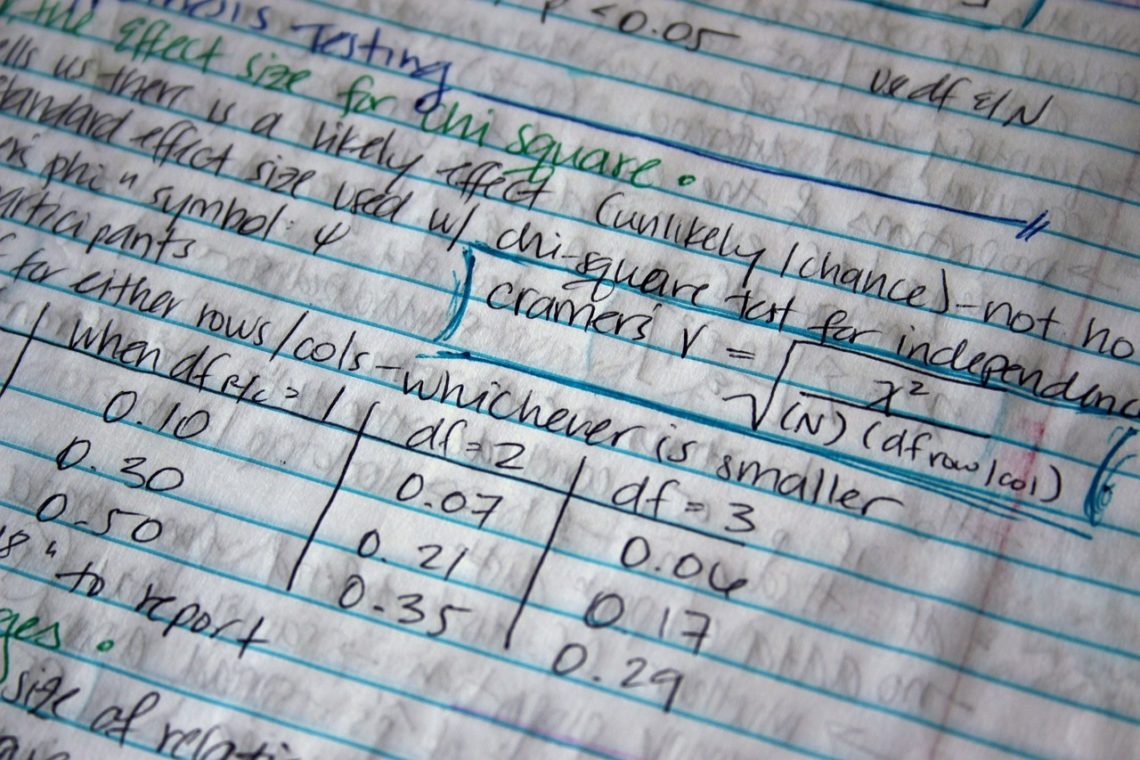 P < 0.05
Testing
use df &/N
the effect size for chi square.
us there is a likely effect (unlikely/chance) - not
standard effect size used w/ chi-square test for independence
phi " symbol: φ
participants
cramers V = √ x² (N) (df row/col)
for either rows/cols - whichever is smaller
when df R/C = 1 df = 2 df = 3
0.10 0.07 0.06
0.30 0.21 0.17
0.50 0.35 0.29
" to report
size of